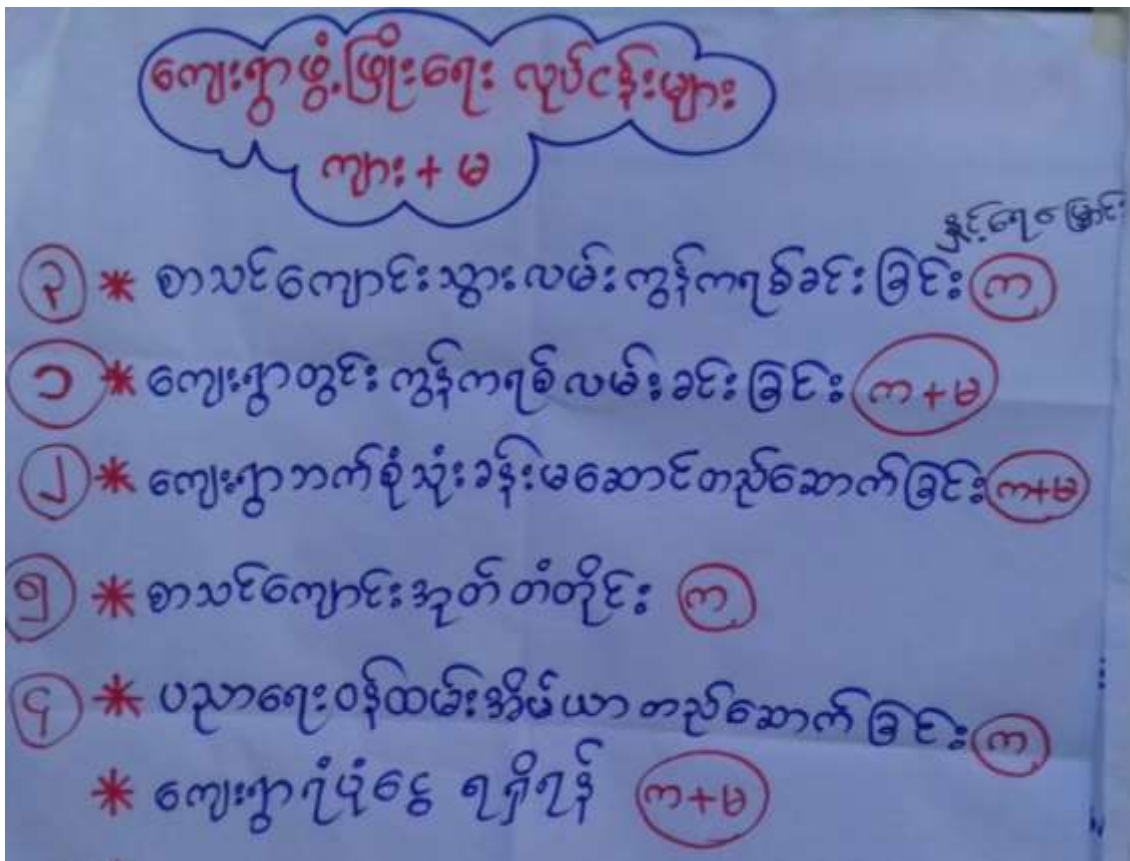 ကျေးရွာဖွံ့ဖြိုးရေး လုပ်ငန်းများ
ကျား + မ
နှင့်ရေမြောင်း
၃ * စာသင်ကျောင်းသွားလမ်းကွန်ကရစ်ခင်းခြင်း က
၁ * ကျေးရွာတွင်းကွန်ကရစ်လမ်းခင်းခြင်း က+မ
၂ * ကျေးရွာဘက်စုံသုံးခန်းမဆောင်တည်ဆောက်ခြင်း က+မ
၅ * စာသင်ကျောင်းအုတ်တံတိုင်း က
၄ * ပညာရေးဝန်ထမ်းအိမ်ယာတည်ဆောက်ခြင်း က
* ကျေးရွာရံပုံငွေ ရရှိရန် က+မ